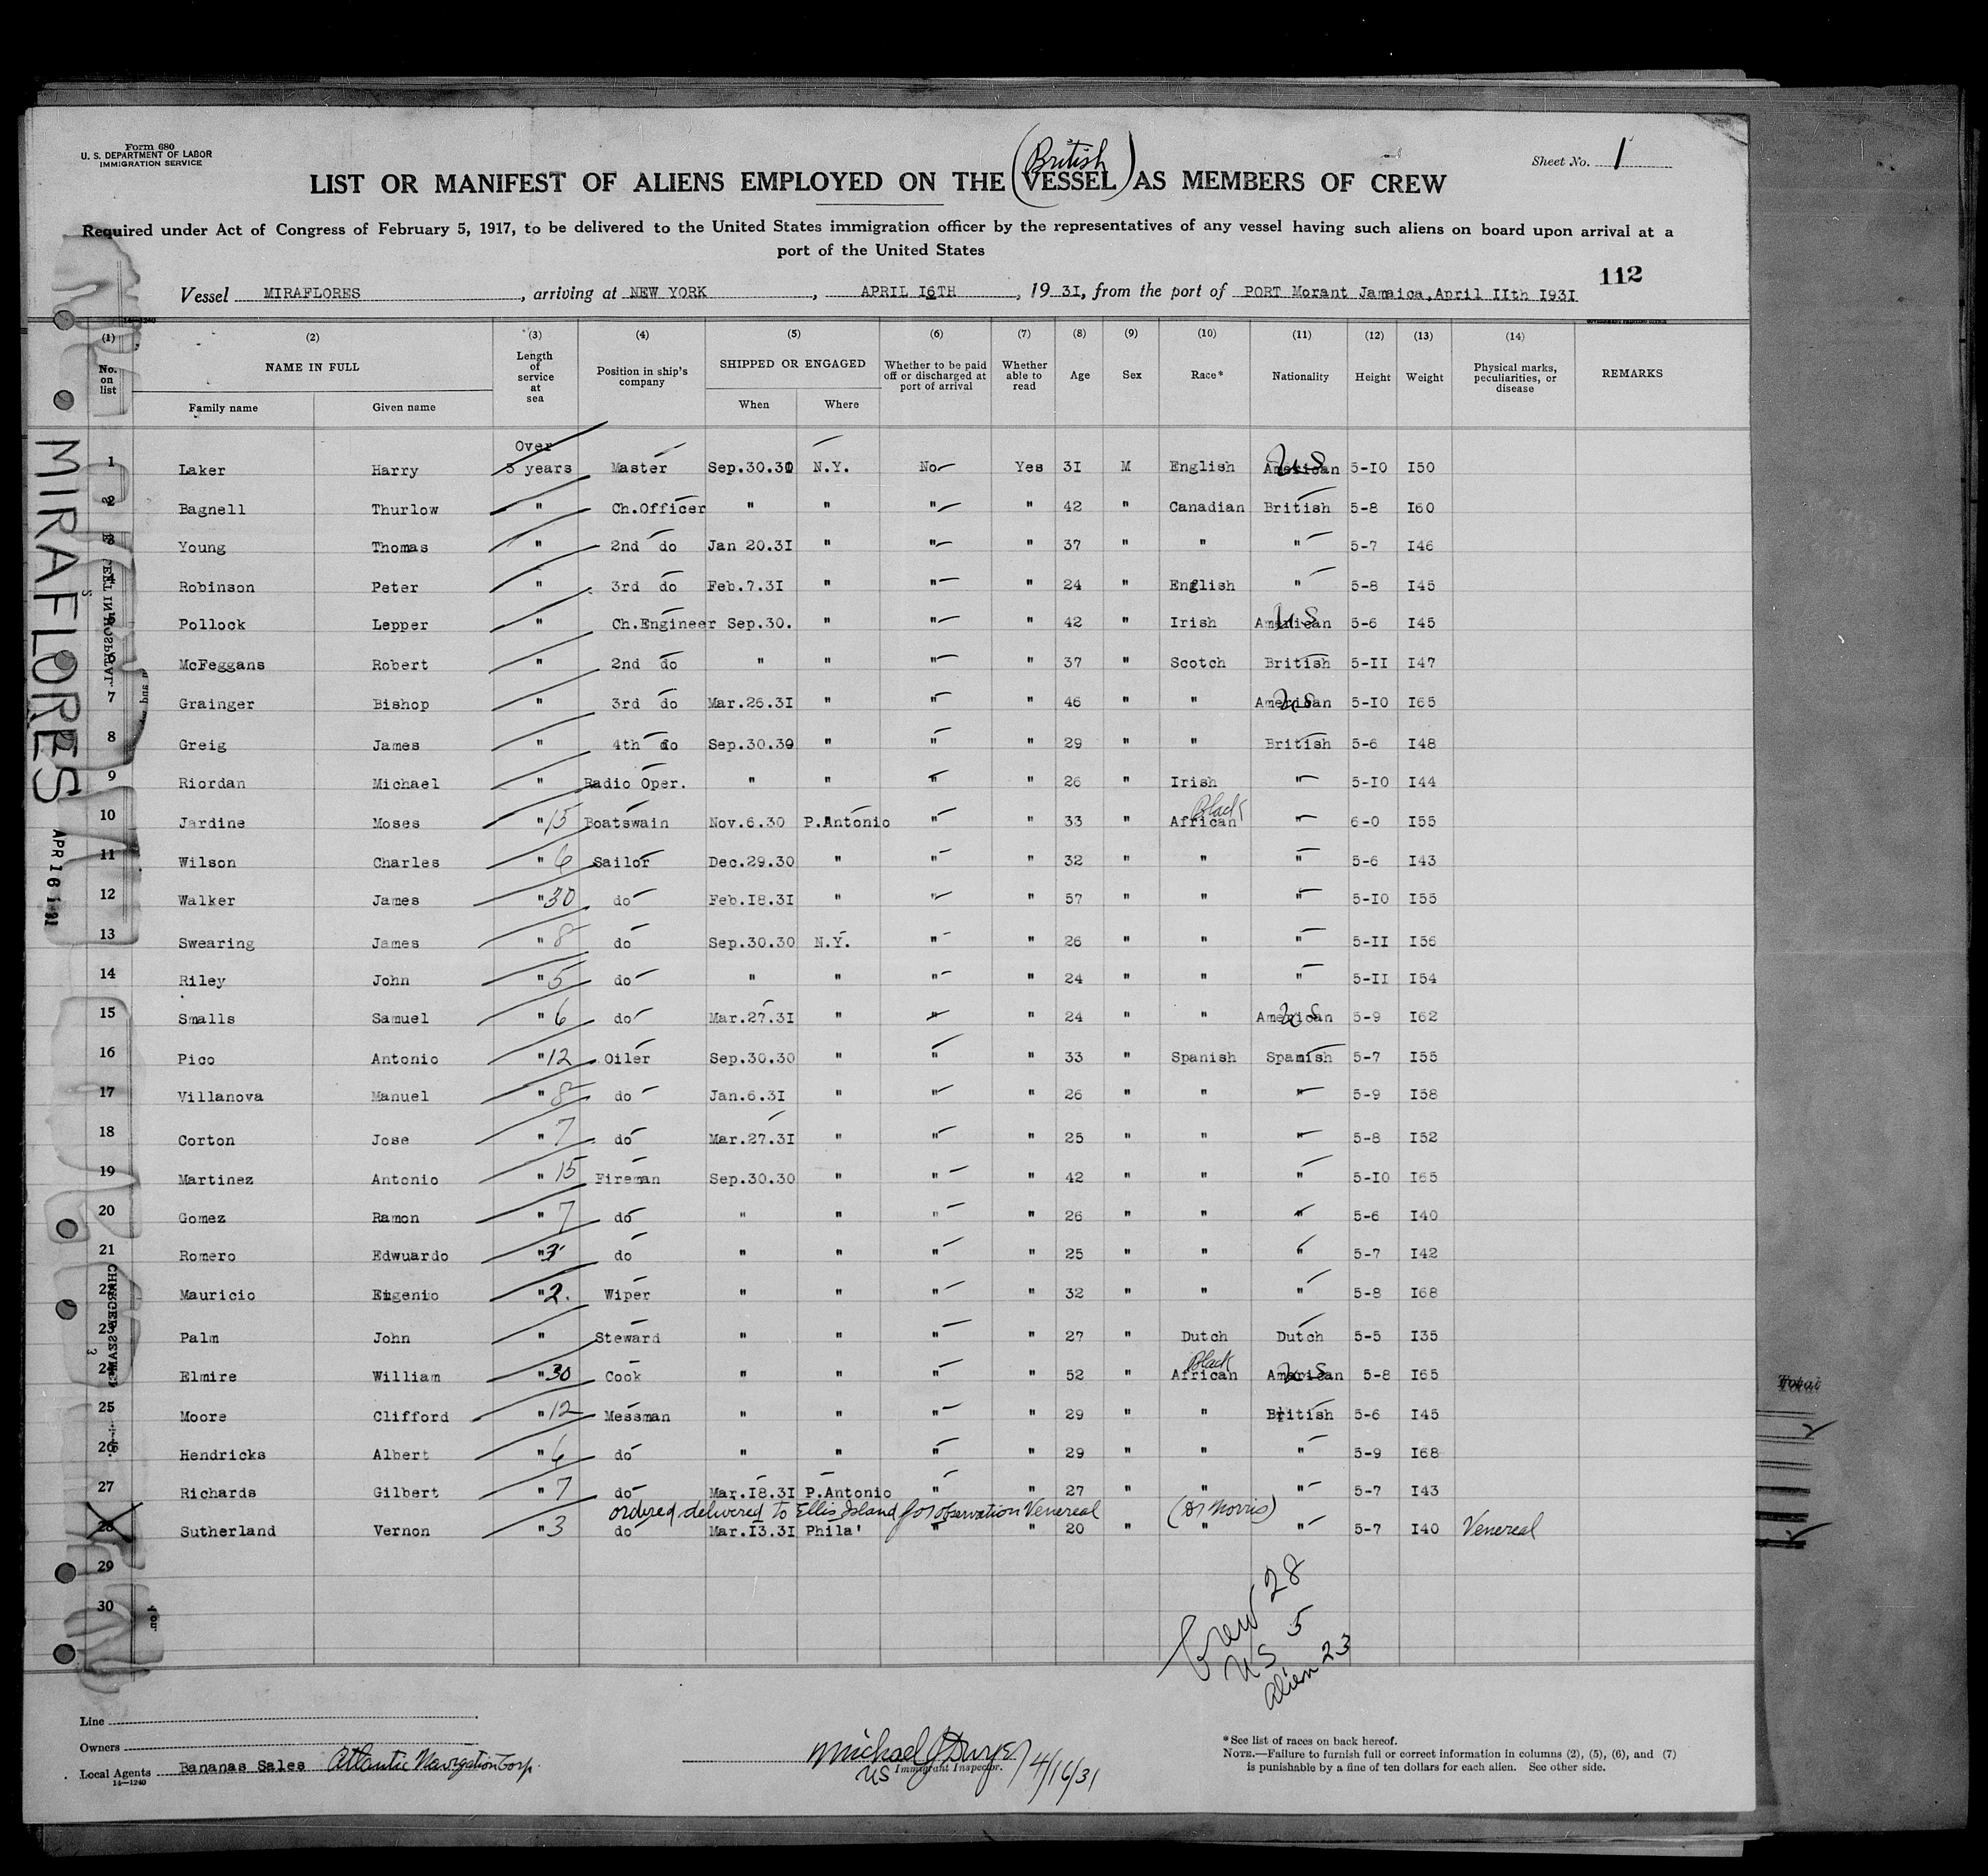 Form 680
U. S. DEPARTMENT OF LABOR
IMMIGRATION SERVICE
Sheet No. 1
(British)
LIST OR MANIFEST OF ALIENS EMPLOYED ON THE VESSEL AS MEMBERS OF CREW
Required under Act of Congress of February 5, 1917, to be delivered to the United States immigration officer by the representatives of any vessel having such aliens on board upon arrival at a
port of the United States
112
Vessel MIRAFLORES, arriving at NEW YORK, APRIL I6TH, 1931, from the port of PORT Morant Jamaica, April IIth I93I
(1) (2) (3) (4) (5) (6) (7) (8) (9) (10) (11) (12) (13) (14)
No. on list NAME IN FULL Length of service at sea Position in ship's company SHIPPED OR ENGAGED Whether to be paid off or discharged at port of arrival Whether able to read Age Sex Race* Nationality Height Weight Physical marks, peculiarities, or disease REMARKS
Family name Given name When Where
Over
1 Laker Harry 5 years Master Sep.30.30 N.Y. No Yes 3I M English American US 5-I0 I50
2 Bagnell Thurlow " Ch.Officer " " " " 42 " Canadian British 5-8 I60
3 Young Thomas " 2nd do Jan 20.3I " " " 37 " " " 5-7 I46
Robinson Peter " 3rd do Feb.7.3I " " " 24 " English " 5-8 I45
Pollock Lepper " Ch.Engineer Sep.30. " " " 42 " Irish American US 5-6 I45
McFeggans Robert " 2nd do " " " " 37 " Scotch British 5-II I47
7 Grainger Bishop " 3rd do Mar.26.3I " " " 46 " " American US 5-I0 I65
8 Greig James " 4th do Sep.30.30 " " " 29 " " British 5-6 I48
9 Riordan Michael " Radio Oper. " " " " 26 " Irish " 5-I0 I44
10 Jardine Moses " 15 Boatswain Nov.6.30 P.Antonio " " 33 " African Black " 6-0 I55
11 Wilson Charles " 6 Sailor Dec.29.30 " " " 32 " " " 5-6 I43
12 Walker James " 30 do Feb.I8.3I " " " 57 " " " 5-I0 I55
13 Swearing James " 8 do Sep.30.30 N.Y. " " 26 " " " 5-II I56
14 Riley John " 5 do " " " " 24 " " " 5-II I54
15 Smalls Samuel " 6 do Mar.27.3I " " " 24 " " American US 5-9 I62
16 Pico Antonio " 12 Oiler Sep.30.30 " " " 33 " Spanish Spanish 5-7 I55
17 Villanova Manuel " 8 do Jan.6.3I " " " 26 " " " 5-9 I58
18 Corton Jose " 7 do Mar.27.3I " " " 25 " " " 5-8 I52
19 Martinez Antonio " 15 Fireman Sep.30.30 " " " 42 " " " 5-I0 I65
20 Gomez Ramon " 7 do " " " " 26 " " " 5-6 I40
21 Romero Edwuardo " 3 do " " " " 25 " " " 5-7 I42
22 Mauricio Eugenio " 2. Wiper " " " " 32 " " " 5-8 I68
23 Palm John " Steward " " " " 27 " Dutch Dutch 5-5 I35
24 Elmire William " 30 Cook " " " " 52 " African Black American US 5-8 I65
25 Moore Clifford " 12 Messman " " " " 29 " " British 5-6 I45
26 Hendricks Albert " 6 do " " " " 29 " " " 5-9 I68
27 Richards Gilbert " 7 do Mar.I8.3I P.Antonio " " 27 " " " 5-7 I43
ordered delivered to Ellis Island for observation Venereal (Dr Morris)
28 Sutherland Vernon " 3 do Mar.I3.3I Phila' " " 20 " " " 5-7 I40 Venereal
29
30
Crew 28
US 5
Alien 23
MIRAFLORES
APR 16 1931
Total
Line
Owners
Local Agents Bananas Sales Atlantic Navigation Corp.
14—1240
Michael J Dwyer 4/16/31
US Immigrant Inspector.
*See list of races on back hereof.
NOTE.—Failure to furnish full or correct information in columns (2), (5), (6), and (7)
is punishable by a fine of ten dollars for each alien. See other side.